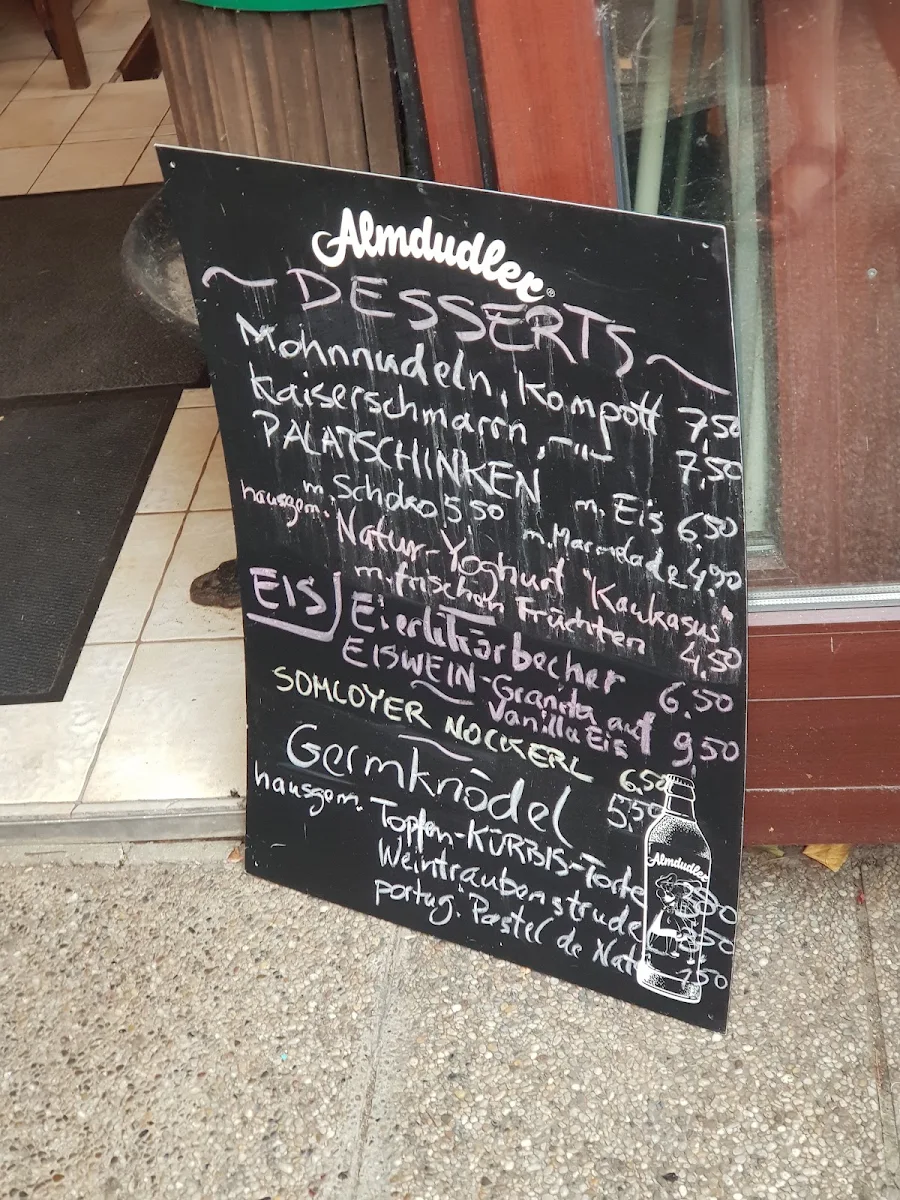 Almdudler®
~ DESSERTS ~
Mohnnudeln, Kompott 7,50
Kaiserschmarrn, -"- 7,50
PALATSCHINKEN
m. Schoko 5,50 m. Eis 6,50
m. Marmelade 4,90
hausgem. Natur-Yoghurt "Kaukasus"
m. frischen Früchten 4.50
EIS Eierlikörbecher 6.50
EISWEIN-Granita auf
Vanilla Eis 9,50
SOMLOYER NOCKERL 6,50
Germknödel 5,50
hausgem. Topfen-KÜRBIS-Torte
Weintraubenstrudel
portug. Pastel de Nata
Almdudler